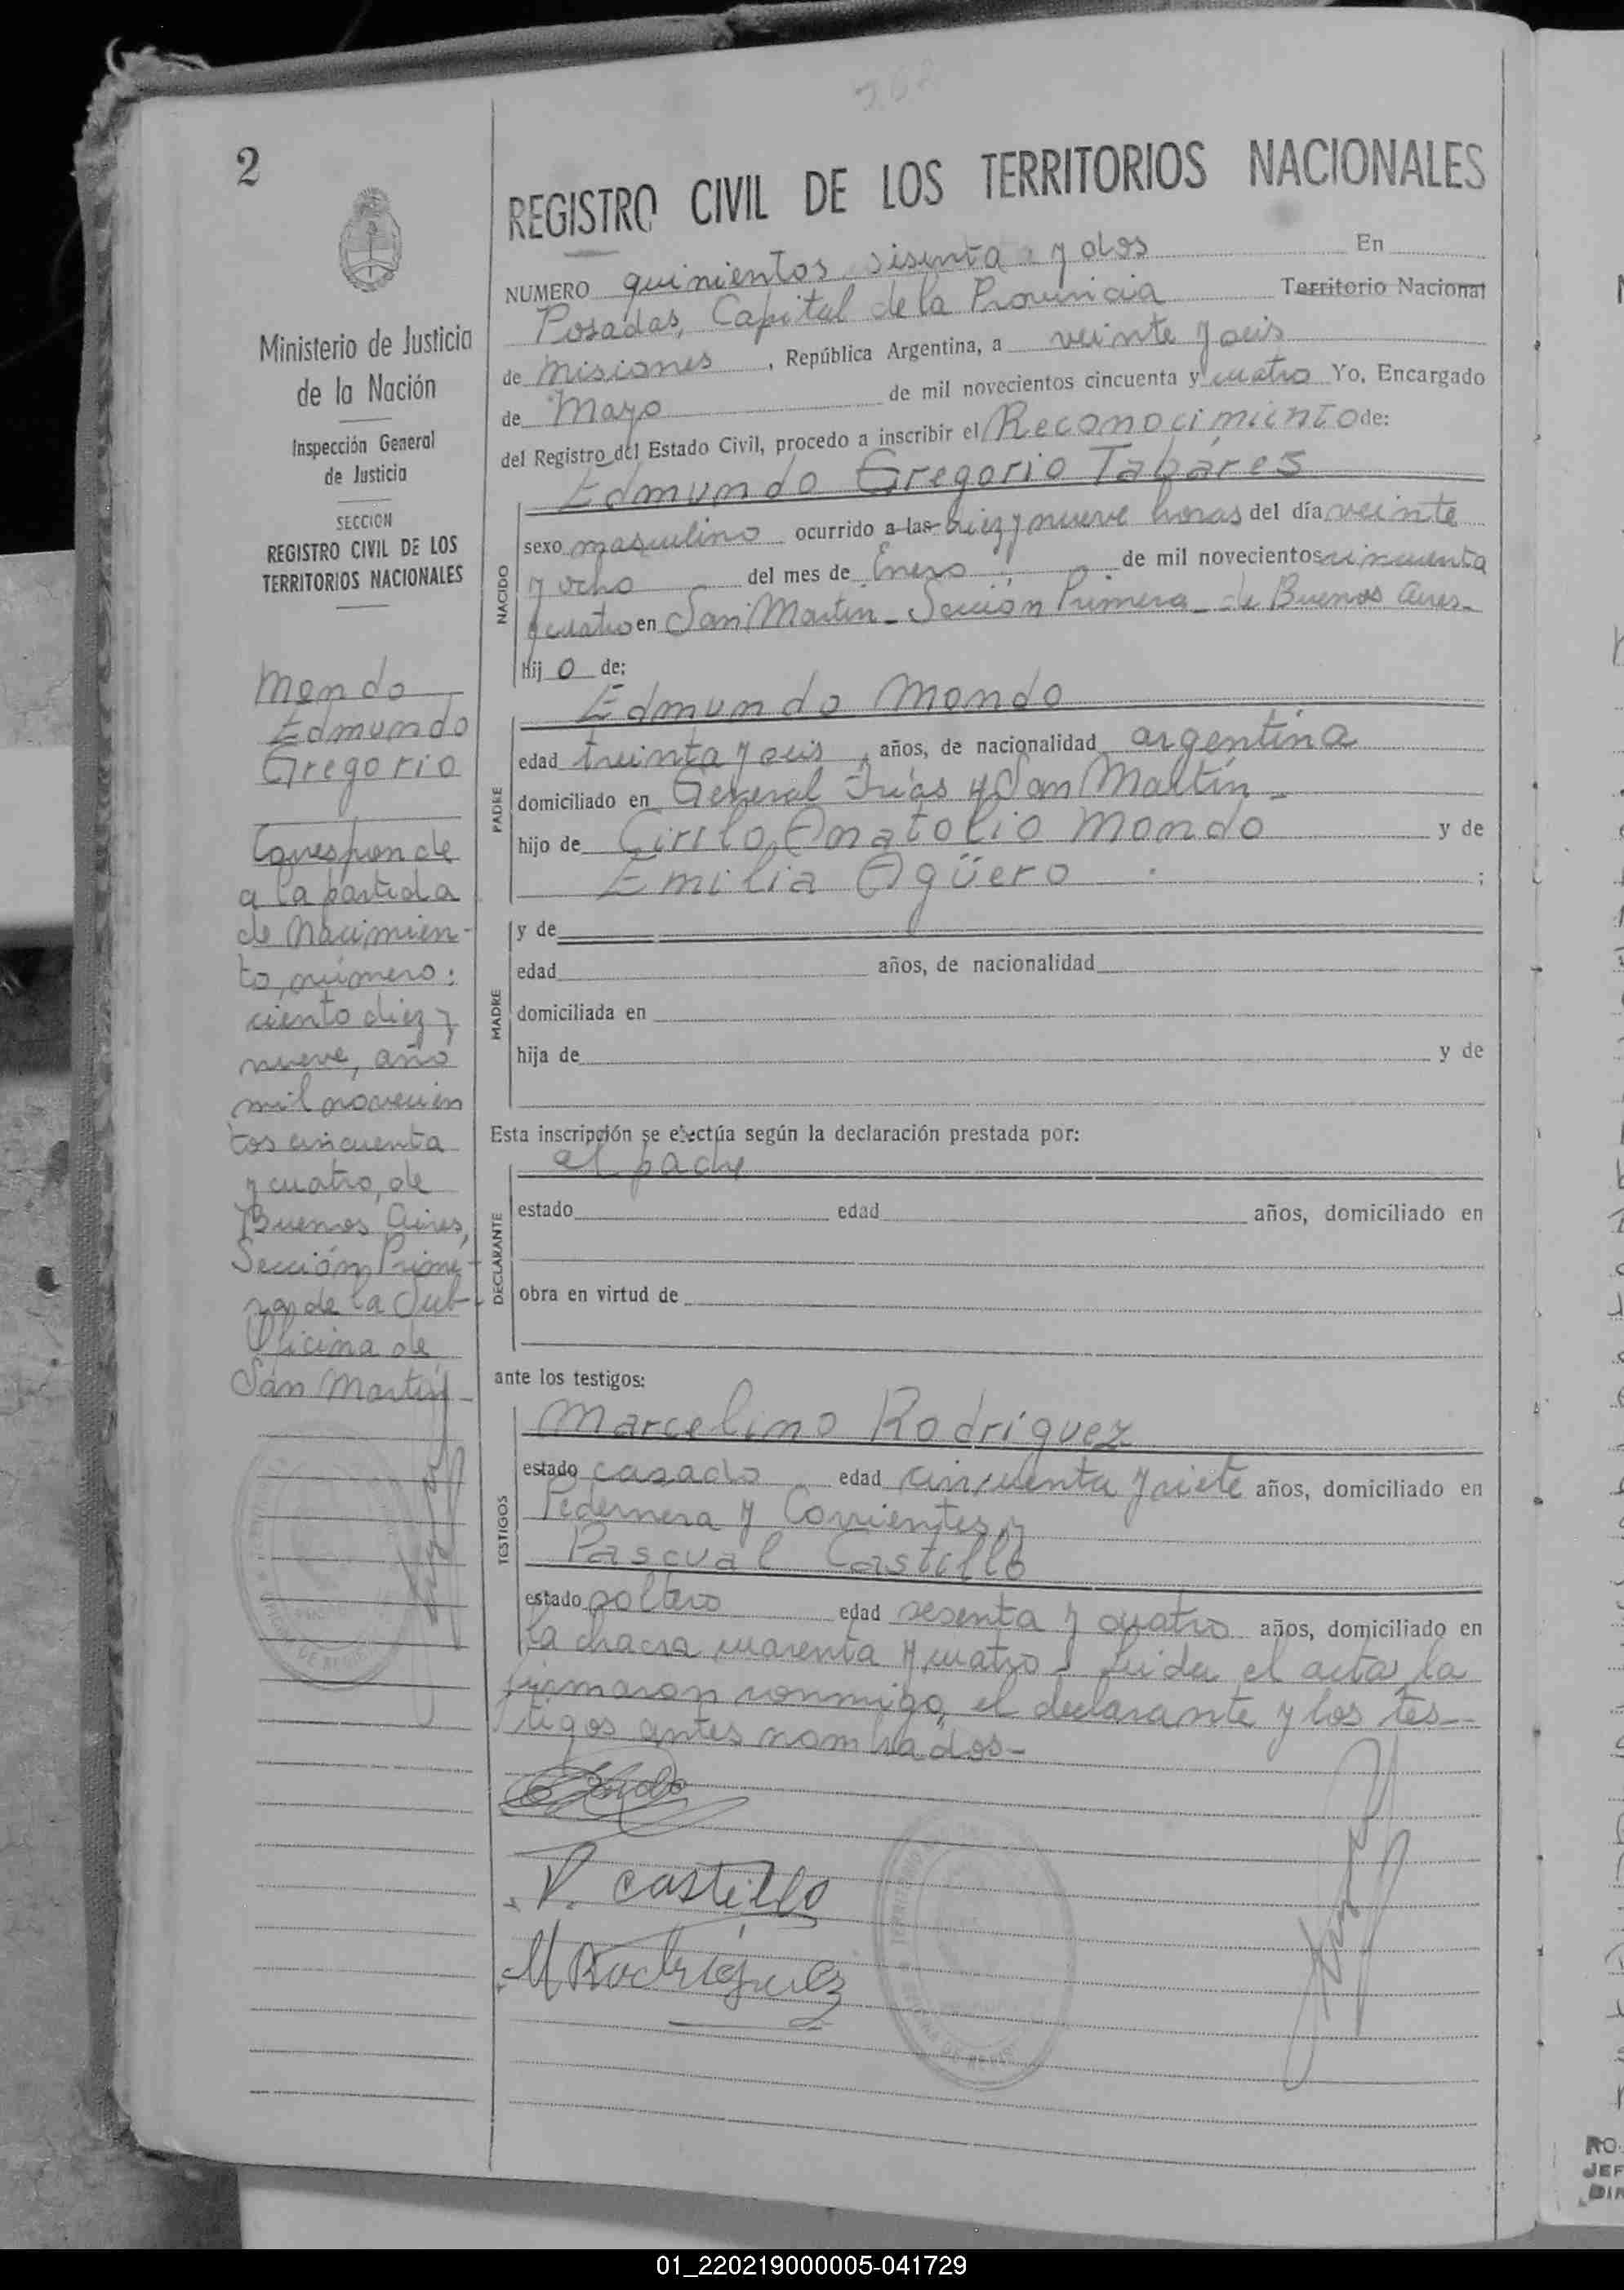 562
2
REGISTRO CIVIL DE LOS TERRITORIOS NACIONALES
NUMERO quinientos sisenta y dos En
Posadas, Capital de la Provincia Territorio Nacional
de Misiones, República Argentina, a veinte y seis
de Mayo de mil novecientos cincuenta y cuatro Yo, Encargado
del Registro del Estado Civil, procedo a inscribir el Reconocimiento de:
Edmundo Gregorio Tabáres
NACIDO
sexo masculino ocurrido a las diez y nueve horas del día veinte
y ocho del mes de Enero de mil novecientos cincuenta
y cuatro en San Martín - Sección Primera - de Buenos Aires -
hijo de:
PADRE
Edmundo Mondo
edad treinta y seis, años, de nacionalidad argentina
domiciliado en General Frías y San Martín -
hijo de Cirilo Anatolio Mondo y de
Emilia Agüero ;
MADRE
y de
edad años, de nacionalidad
domiciliada en
hija de y de
Esta inscripción se efectúa según la declaración prestada por:
DECLARANTE
el padre
estado edad años, domiciliado en
obra en virtud de
ante los testigos:
TESTIGOS
Marcelino Rodríguez
estado casado edad cincuenta y siete años, domiciliado en
Pedernera y Corrientes y
Pascual Castillo
estado soltero edad sesenta y cuatro años, domiciliado en
la chacra cuarenta y cuatro - Leída el acta, la
firmaron conmigo, el declarante y los tes-
tigos antes nombrados -
P. Castillo
M Rodríguez
Ministerio de Justicia
de la Nación
Inspección General
de Justicia
SECCION
REGISTRO CIVIL DE LOS
TERRITORIOS NACIONALES
Mondo
Edmundo
Gregorio
Corresponde
a la partida
de Nacimien-
to, número:
ciento diez y
nueve, año
mil novecien
tos cincuenta
y cuatro, de
Buenos Aires,
Sección Prime-
ra, de la Sub-
Oficina de
San Martín -
RO
JEF
DIR
01_220219000005-041729